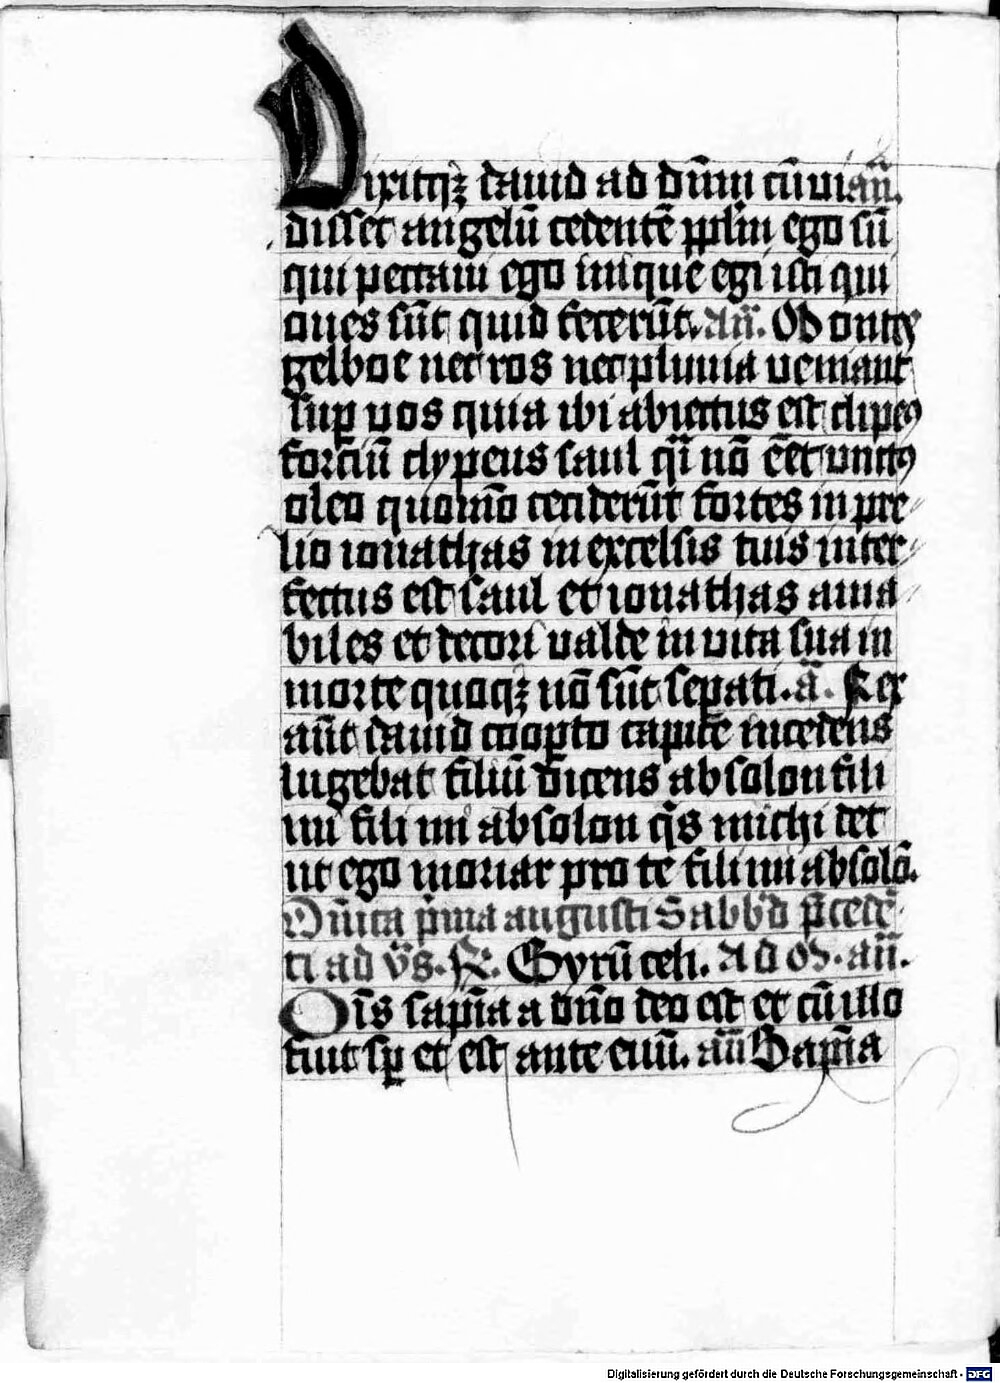 Dixitqꝫ dauid ad dn̄m cū ui an̄.
disset angelū cedentē ppl̄m ego sū
qui peccaui ego inique egi isti qui
oues sūt quid fecerūt. an̄. Montes
gelboe nec ros nec pluuia ueniant
sup uos quia ibi abiectus est clipeꝰ
forciū clypeus saul q̄i nō eēt unctꝰ
oleo quomō ceciderūt fortes in pre
lio ionathas in excelsis tuis inter
fectus est saul et ionathas ama
biles et decori ualde in uita sua in
morte quoqꝫ nō sūt sepati. ā. Rex
aūt dauid coopto capite incedens
lugebat filiū dicens absolon fili
mi fili mi absolon q̄s michi det
ut ego moriar pro te fili mi absolō.
Dn̄ica p̄ma augusti Sabb̄o p̄cedē
ti ad v̄s. R̄. Gyrū celi. Ad m̄. an̄.
Oīs sapīa a dn̄o deo est et cū illo
fuit sp et est ante euū. an̄ Sapīa
Digitalisierung gefördert durch die Deutsche Forschungsgemeinschaft - DFG